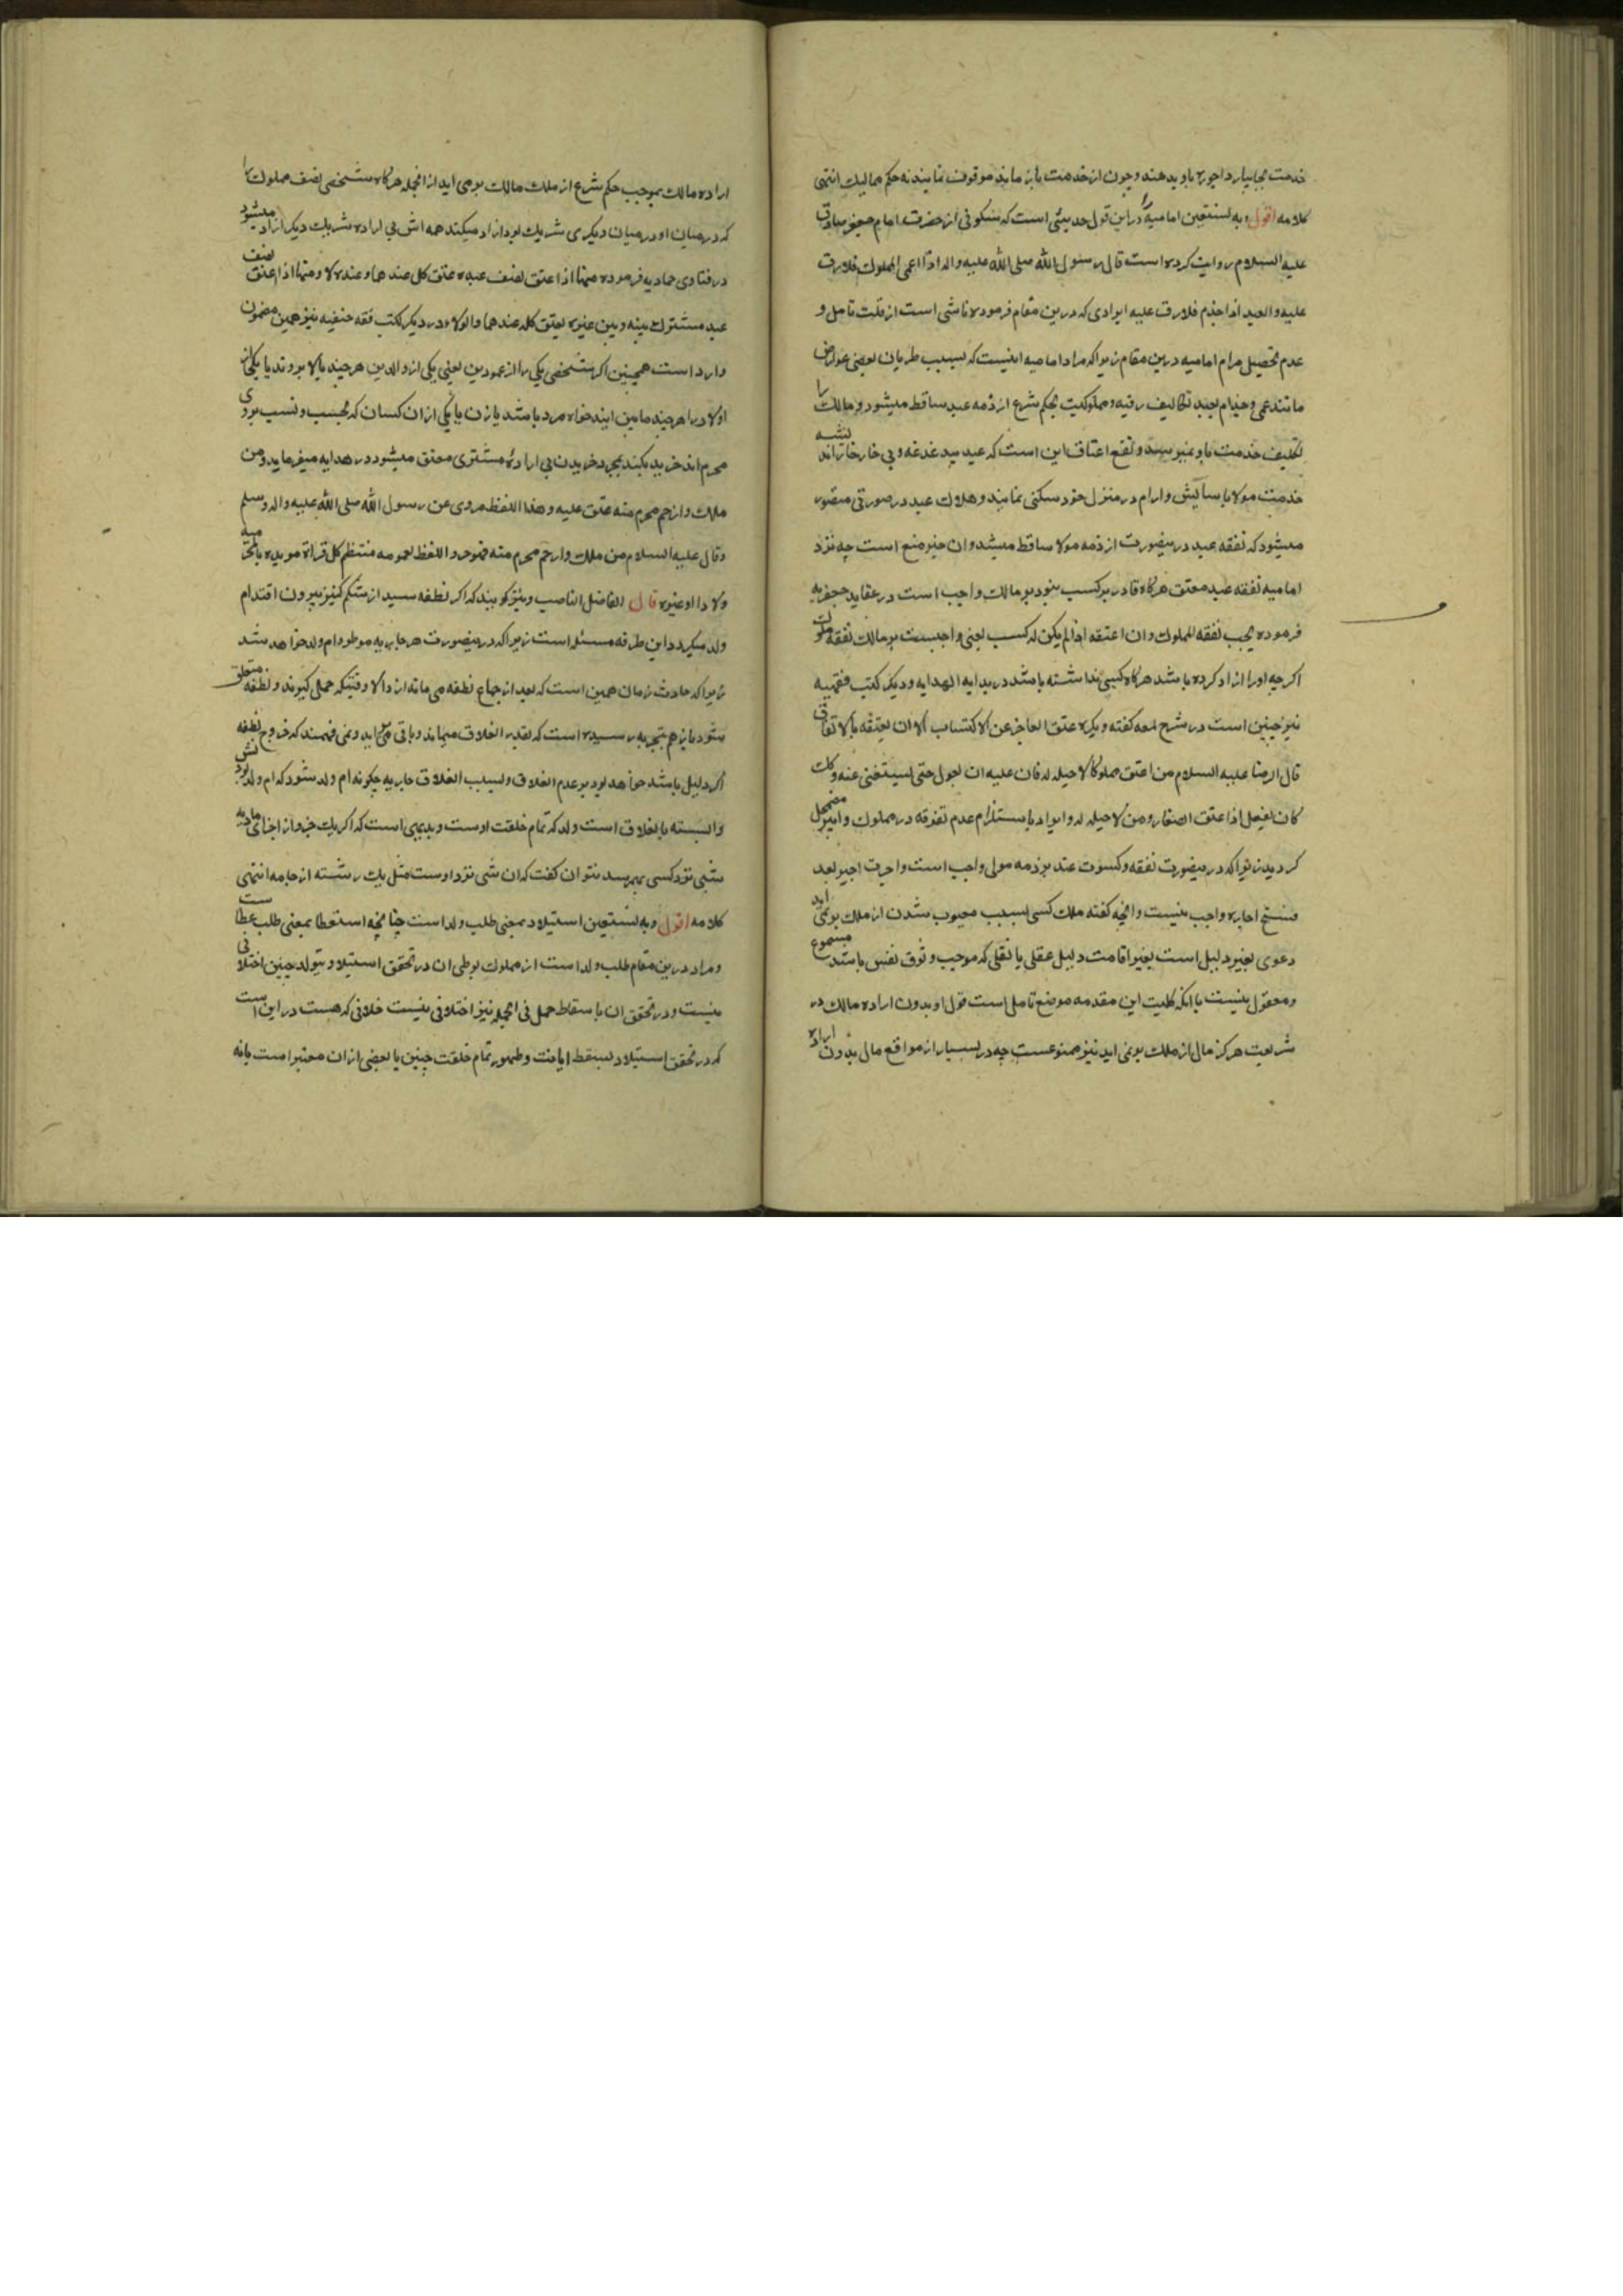 خدمت بجا بیارد اجوره باو بدهند و چون از خدمت باز ماند موقوف نمایند نه حکم ممالیک انتهی
کلامه اقول و به نستعین امامیه را دراین قول حدیثی است که سکونی از حضرت امام جعفر صادق
علیه السلام روایت کرده است قال رسول الله صلی الله علیه واله اذا اعمی المملوک فلارق
علیه والعبد اذا جذم فلارق علیه ایرادی که درین مقام فرموده ناشی است از قلت تامل و
عدم تحصیل مرام امامیه درین مقام زیرا که مراد امامیه اینست که بسبب طریان بعضی عوارض
مانند عمی و جذام بعبد تکالیف رقیه و مملوکیت بحکم شرع از ذمه عبد ساقط میشود و مالک را
تکلیف خدمت باو نمیرسد و نفع اعتاق این است که عبد بیدغدغه و بی خارخار اندیشه
خدمت مولا باسایش وارام در منزل خود سکنی نماید و هلاک عبد در صورتی متصور
میشود که نفقه عبد درینصورت از ذمه مولا ساقط میشد وان حیز منع است چه نزد
امامیه نفقه عبد معتق هرگاه قادر بر کسب نبود بر مالک واجب است در عقاید جعفریه
فرموده یجب نفقه المملوک وان اعتقه اذا لم یکن له کسب یعنی واجبست بر مالک نفقه مملوک
اگرچه اورا ازاد کرده باشد هرگاه کسبی نداشته باشد در بدایه الهدایه و دیگر کتب فقهیه
نیز چنین است در شرح لمعه گفته و یکره عتق العاجز عن الاکتساب الا ان یعتقه بالاتفاق
قال الرضا علیه السلام من اعتق مملوکا لا حیله له فان علیه ان یعول حتی یستغنی عنه وکذلک
کان یفعل اذا عتق الصغار ومن لا حیله له وایراد باستلزام عدم تفرقه در مملوک واجیر مضمحل
کردید زیرا که درینصورت نفقه و کسوت عبد بر ذمه مولی واجب است واجرت اجیر بعد
فسخ اجاره واجب نیست وانچه گفته ملک کسی بسبب معیوب شدن از ملک بر نمی اید
دعوی بغیر دلیل است بغیر اقامت دلیل عقلی یا نقلی که موجب وثوق نفس باشد مسموع
ومعقول نیست با انکه کلیت این مقدمه موضع تامل است قول او بدون اراده مالک در
شریعت هرگز مال از ملک بر نمی اید نیز ممنوعست چه در بسیار از مواقع مال بدون اراده
اراده مالک بموجب حکم شرع از ملک مالک برمی اید ازانجمله هرگاه شخصی نصف مملوک را
که درمیان او درمیان دیگری شریک بود ازاد میکند همه اش بی اراده شریک دیگر ازاد میشود
در فتاوی حمادیه فرموده منها اذا عتق نصف عبده عتق کل عندهما وعنده لا ومنها اذا عتق نصف
عبد مشترک بینه وبین غیره یعتق کله عندهما والولاء در دیگر کتب فقه حنفیه نیز همین مضمون
وارد است همچنین اگر شخصی یکی را از عمودین یعنی یکی از والدین هرچند بالا بروند یا یکی از
اولاد را هرچند پایین ایند خواه مرد باشد یا زن یا یکی از ان کسان که بحسب و نسب بر وی
محرم اند خرید بکند بمجرد خریدن بی اراده مشتری معتق میشود در هدایه میفرماید ومن
ملک ذا رحم محرم منه عتق علیه وهذا اللفظ مروی عن رسول الله صلی الله علیه واله وسلم
وقال علیه السلام من ملک ذا رحم محرم منه فهو حر واللفظ لعمومه منتظم کل قرابة مویده بالمحرمیه
ولادا او غیره قال الفاضل الناصب ونیز گویند که اگر نطفه سید از شکم کنیز بیرون افتد ام
ولد میگردد این طرفه مسئله است زیرا که درینصورت هر جاریه موطؤ ام ولد خواهد شد
زیرا که عادت زمان همین است که بعد از جماع نطفه می ماند ازد الا وقتیکه حمل گیرند و نطفه متعلق
شود باز هم بتجربه رسیده است که بقدر انعلاق میماند وباقی می اید ونمی فهمند که خروج نطفه
اگر دلیل باشد خواهد بود بر عدم انعلاق وبسبب انعلاق جاریه چگونه ام ولد شود که ام ولد بودنش
وابسته بانعلاق است ولد که تمام خلقت اوست وبدیهی است که اگر یک جزو از اجزای مادیه
شیی نزد کسی بهم رسد نتوان گفت که ان شی نزد اوست مثل یک رشته از جامه انتهی
کلامه اقول و به نستعین استیلاد بمعنی طلب ولد است چنانچه استعطا بمعنی طلب عطاست
ومراد درین مقام طلب ولد است از مملوک بوطی ان در تحقق استیلاد بتولد جنین اختلافی
نیست ودر تحقق ان باسقاط حمل فی الجمله نیز اختلافی نیست خلافی که هست در این است
که در تحقق استیلاد بسقط ایا نت وظهور تمام خلقت جنین یا بعضی از ان معتبر است یا نه